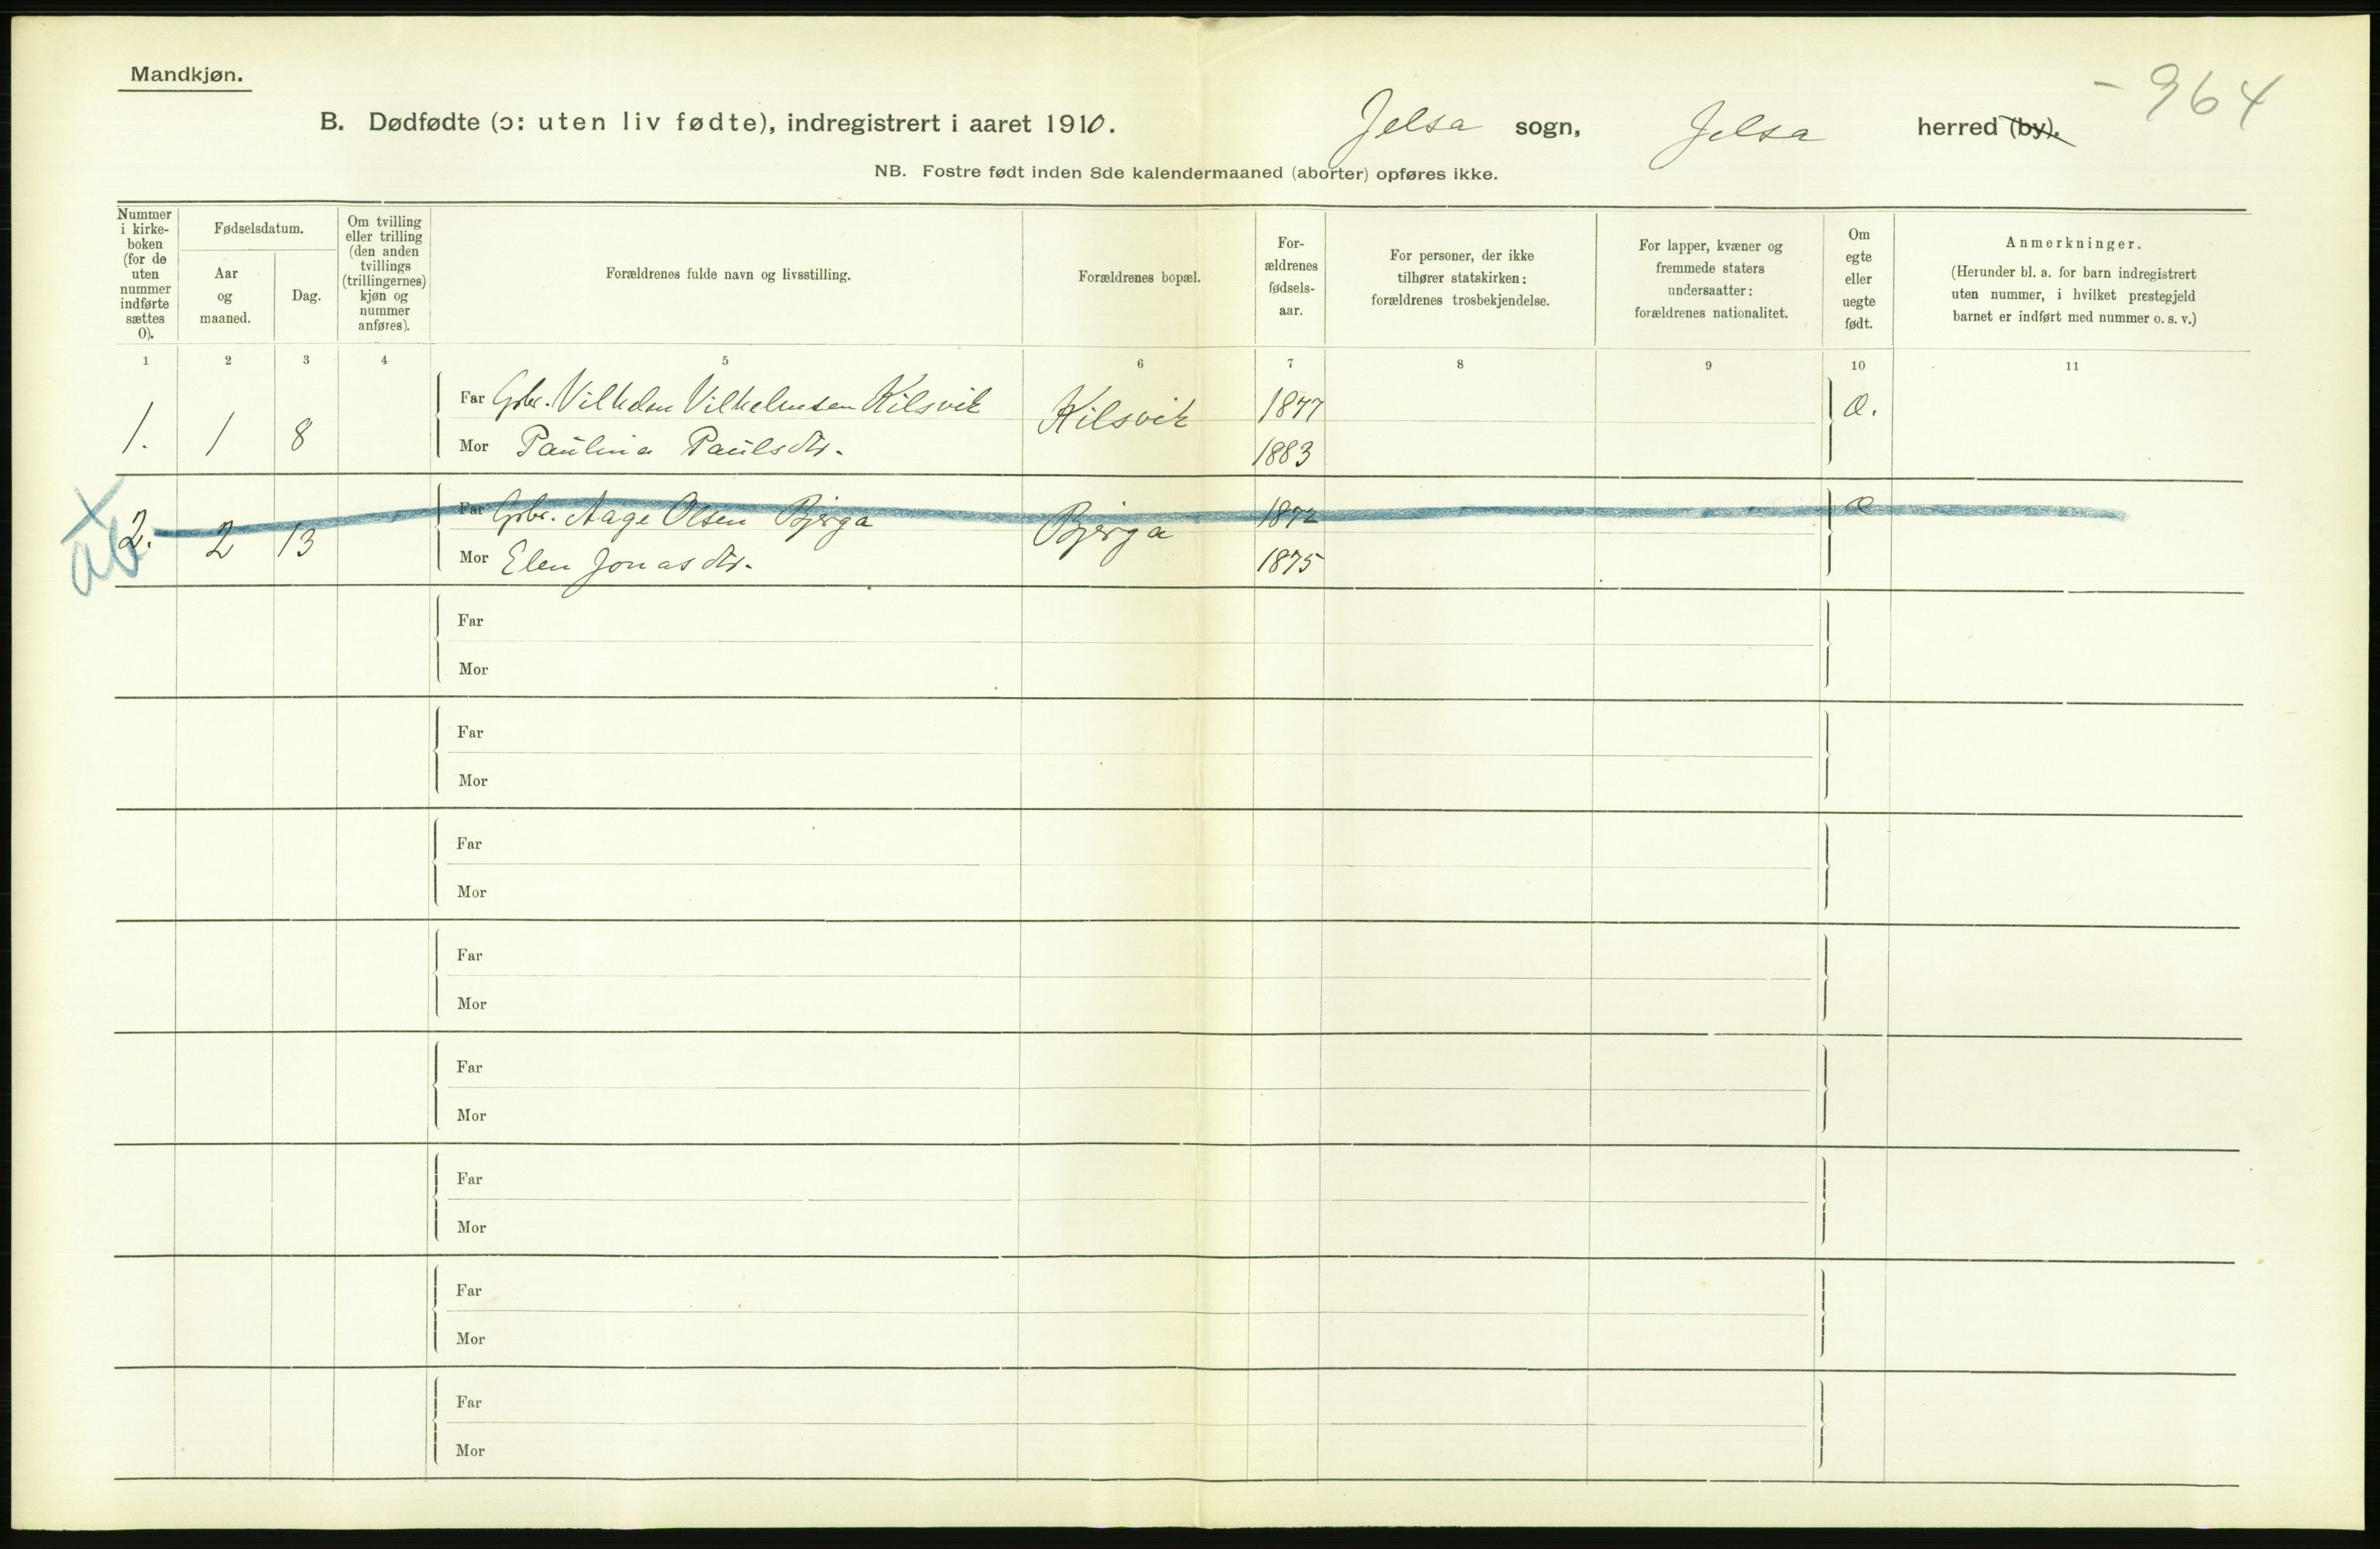 Mandkjøn.
- 964
B. Dødfødte (ɔ: uten liv fødte), indregistrert i aaret 1910. Jelsa sogn, Jelsa herred (by).
NB. Fostre født inden 8de kalendermaaned (aborter) opføres ikke.
Nummer
i kirke-
boken
(for de
uten
nummer
indførte
sættes
0).
Fødselsdatum.
Aar
og
maaned.
Dag.
Om tvilling
eller trilling
(den anden
tvillings
(trillingernes)
kjøn og
nummer
anføres).
Forældrenes fulde navn og livsstilling.
Forældrenes bopæl.
For-
ældrenes
fødsels-
aar.
For personer, der ikke
tilhører statskirken:
forældrenes trosbekjendelse.
For lapper, kvæner og
fremmede staters
undersaatter:
forældrenes nationalitet.
Om
egte
eller
uegte
født.
Anmerkninger.
(Herunder bl. a. for barn indregistrert
uten nummer, i hvilket prestegjeld
barnet er indført med nummer o. s. v.)
1 2 3 4 5 6 7 8 9 10 11
Far Gbr. Vilhelm Vilhelmsen Kilsvik Kilsvik 1877 Æ.
1. 1 8 Mor Paulina Paulsdtr. 1883
Far Gbr. Aage Olsen Bjerga Bjerga 1872 Æ
2. 2 13 Mor Elen Jonasdtr. 1875
Far
Mor
Far
Mor
Far
Mor
Far
Mor
Far
Mor
Far
Mor
Far
Mor
Far
Mor